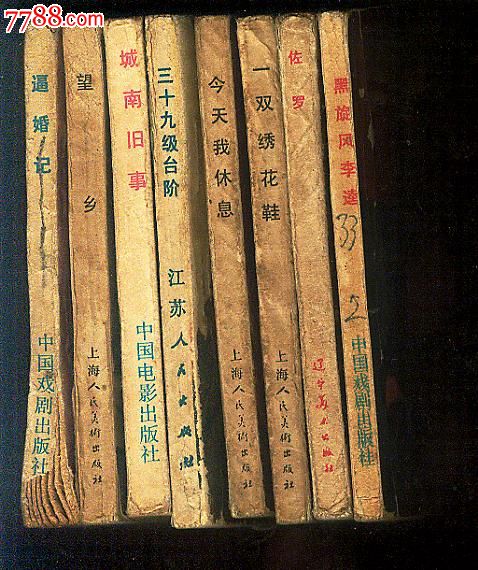 7788.com
逼婚记
中国戏剧出版社
望乡
上海人民美術出版社
城南旧事
中国电影出版社
三十九级台阶
江苏人民出版社
今天我休息
上海人民美術出版社
一双绣花鞋
上海人民美術出版社
佐罗
辽宁美术出版社
黑旋风李逵
33
2
中国戏剧出版社